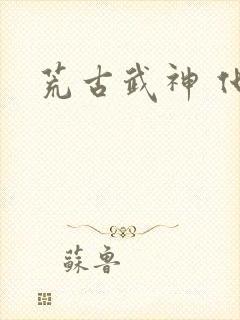 荒古武神
蘇魯